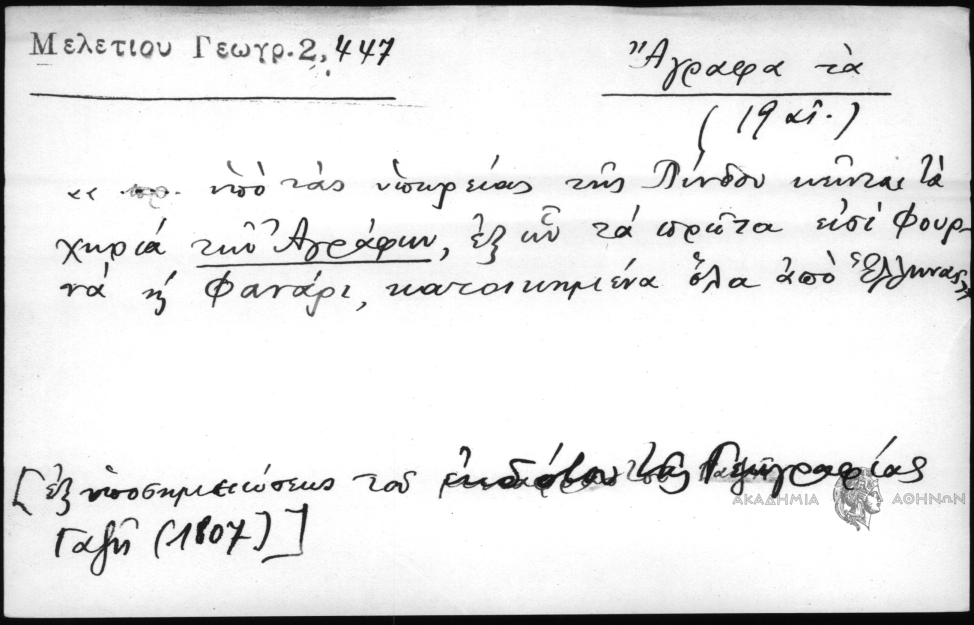 Μελετίου Γεωγρ. 2, 447
Ἄγραφα τὰ
(19 αἰ.)
«« ὑπὸ τὰς ὑπωρείας τῆς Πίνδου κεῖνται τὰ
χωριά τῶν Ἀγράφων, ἐξ ὧν τὰ πρῶτα εἰσί Φουρ-
νά ἤ Φανάρι, κατοικημένα ὅλα ἀπό Ἕλληνας»
[ἐξ ὑποσημειώσεως τοῦ ἐκδότου τῆς Γεωγραφίας
ΑΚΑΔΗΜΙΑ ΑΘΗΝΩΝ
Γαζῆ (1807)]